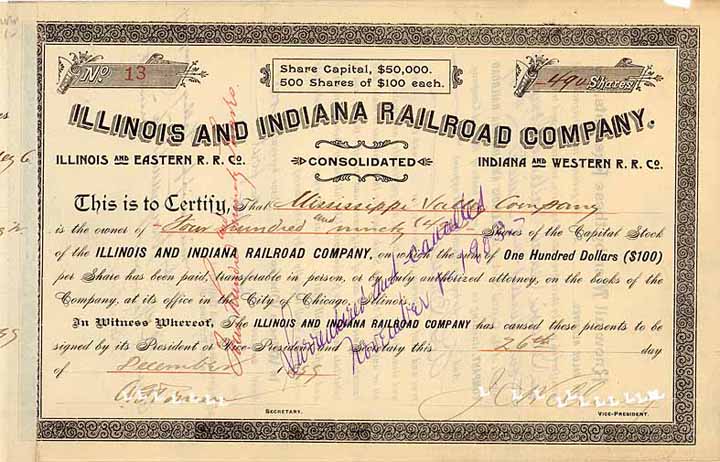 No. 13
Share Capital, $50,000.
500 Shares of $100 each.
490 Shares
ILLINOIS AND INDIANA RAILROAD COMPANY.
ILLINOIS AND EASTERN R. R. Co.
CONSOLIDATED
INDIANA AND WESTERN R. R. Co.
This is to Certify, That Mississippi Valley Company
is the owner of Four hundred and ninety (490) Shares of the Capital Stock
of the ILLINOIS AND INDIANA RAILROAD COMPANY, on which the sum of One Hundred Dollars ($100)
per Share has been paid, transferable in person, or by duly authorized attorney, on the books of the
Company, at its office in the City of Chicago, Illinois.
In Witness Whereof, The ILLINOIS AND INDIANA RAILROAD COMPANY has caused these presents to be
signed by its President or Vice-President and Secretary this 26th day
of December 1899
SECRETARY.
VICE-PRESIDENT.
Surrendered and cancelled
November 1, 1903